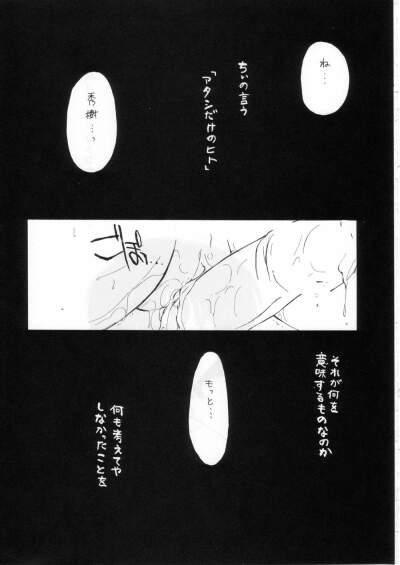 ね…
ちぃの言う
「アタシだけのヒト」
秀樹…っ
それが何を
意味するものなのか
もっと…
何も考えてや
しなかったことを